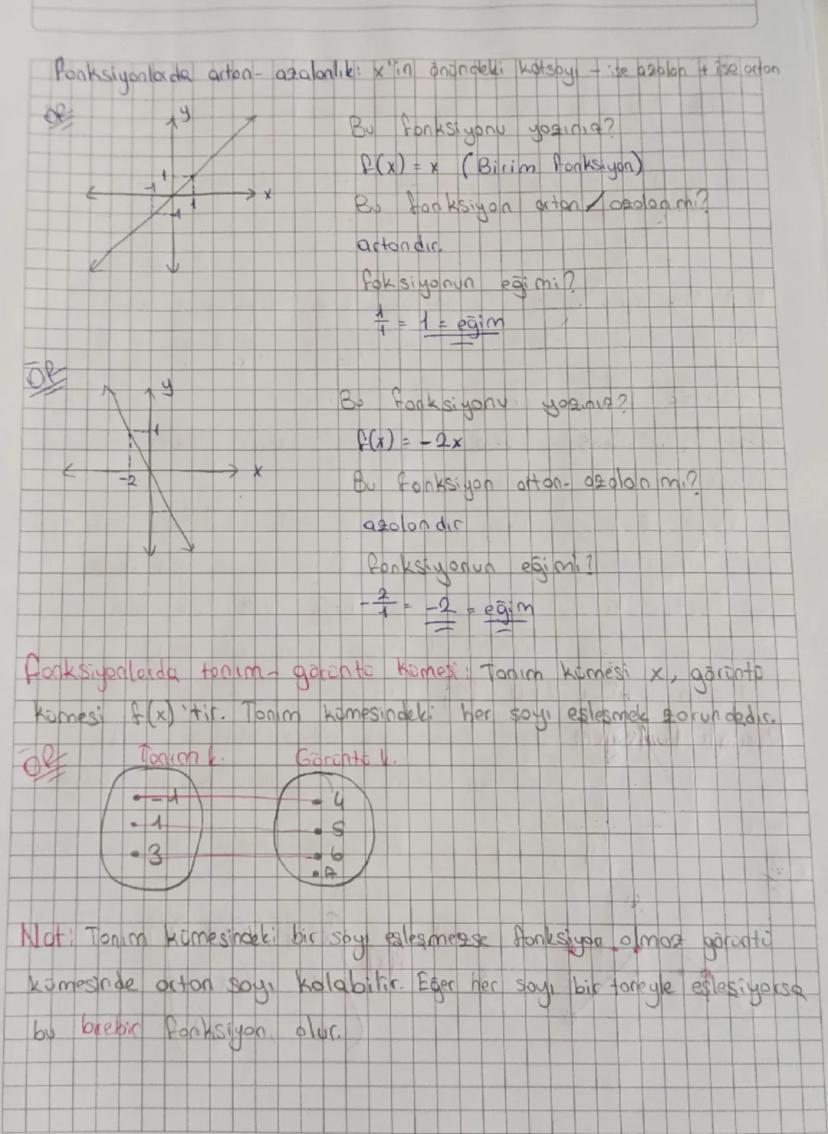 Fonksiyonlarda artan-azalanlık: x'in önündeki katsayı - ise azalan + ise artan
ÖR
y
Bu fonksiyonu yazınız?
f(x) = x (Birim fonksiyon)
1
-1
1
-1
x
Bu fonksiyon artan/azalan mı?
artandır.
foksiyonun eğimi?
1/1 = 1 = eğim
ÖR
y
Bu fonksiyonu yazınız?
1
f(x) = -2x
-2
x
Bu fonksiyon artan-azalan mı?
azalandır
fonksiyonun eğimi?
-2/1 = -2 = eğim
fonksiyonlarda tanım-görüntü kümesi: Tanım kümesi x, görüntü
kümesi f(x)'tir. Tanım kümesindeki her sayı eşleşmek zorundadır.
ÖR
Tanım k. Görüntü k.
-1 4
1 5
3 6
7
Not: Tanım kümesindeki bir sayı eşleşmezse fonksiyon olmaz görüntü
kümesinde artan sayı kalabilir. Eğer her sayı bir taneyle eşleşiyorsa
bu birebir fonksiyon olur.